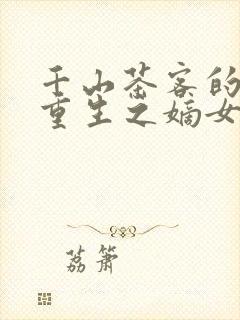 千山茶客的
重生之嫡女
荔箫